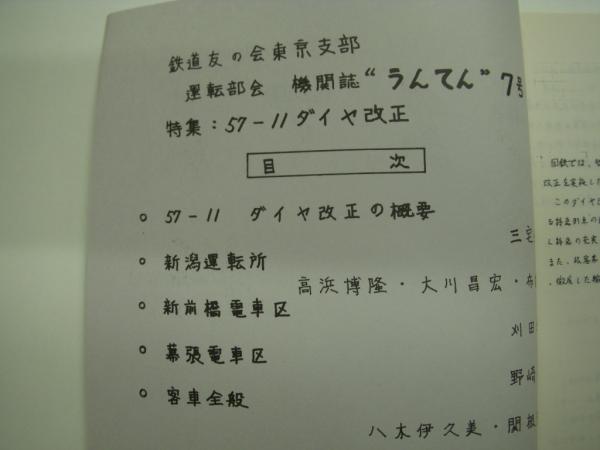 鉄道友の会東京支部
運転部会 機関誌“うんてん”7号
特集:57-11ダイヤ改正
目 次
○ 57-11 ダイヤ改正の概要
三宅
○ 新潟運転所
高浜博隆・大川昌宏・
○ 新前橋電車区
刈田
○ 幕張電車区
野崎
○ 客車全般
八木伊久美・関根
国鉄では、
改正を実施した
このダイヤ
また、